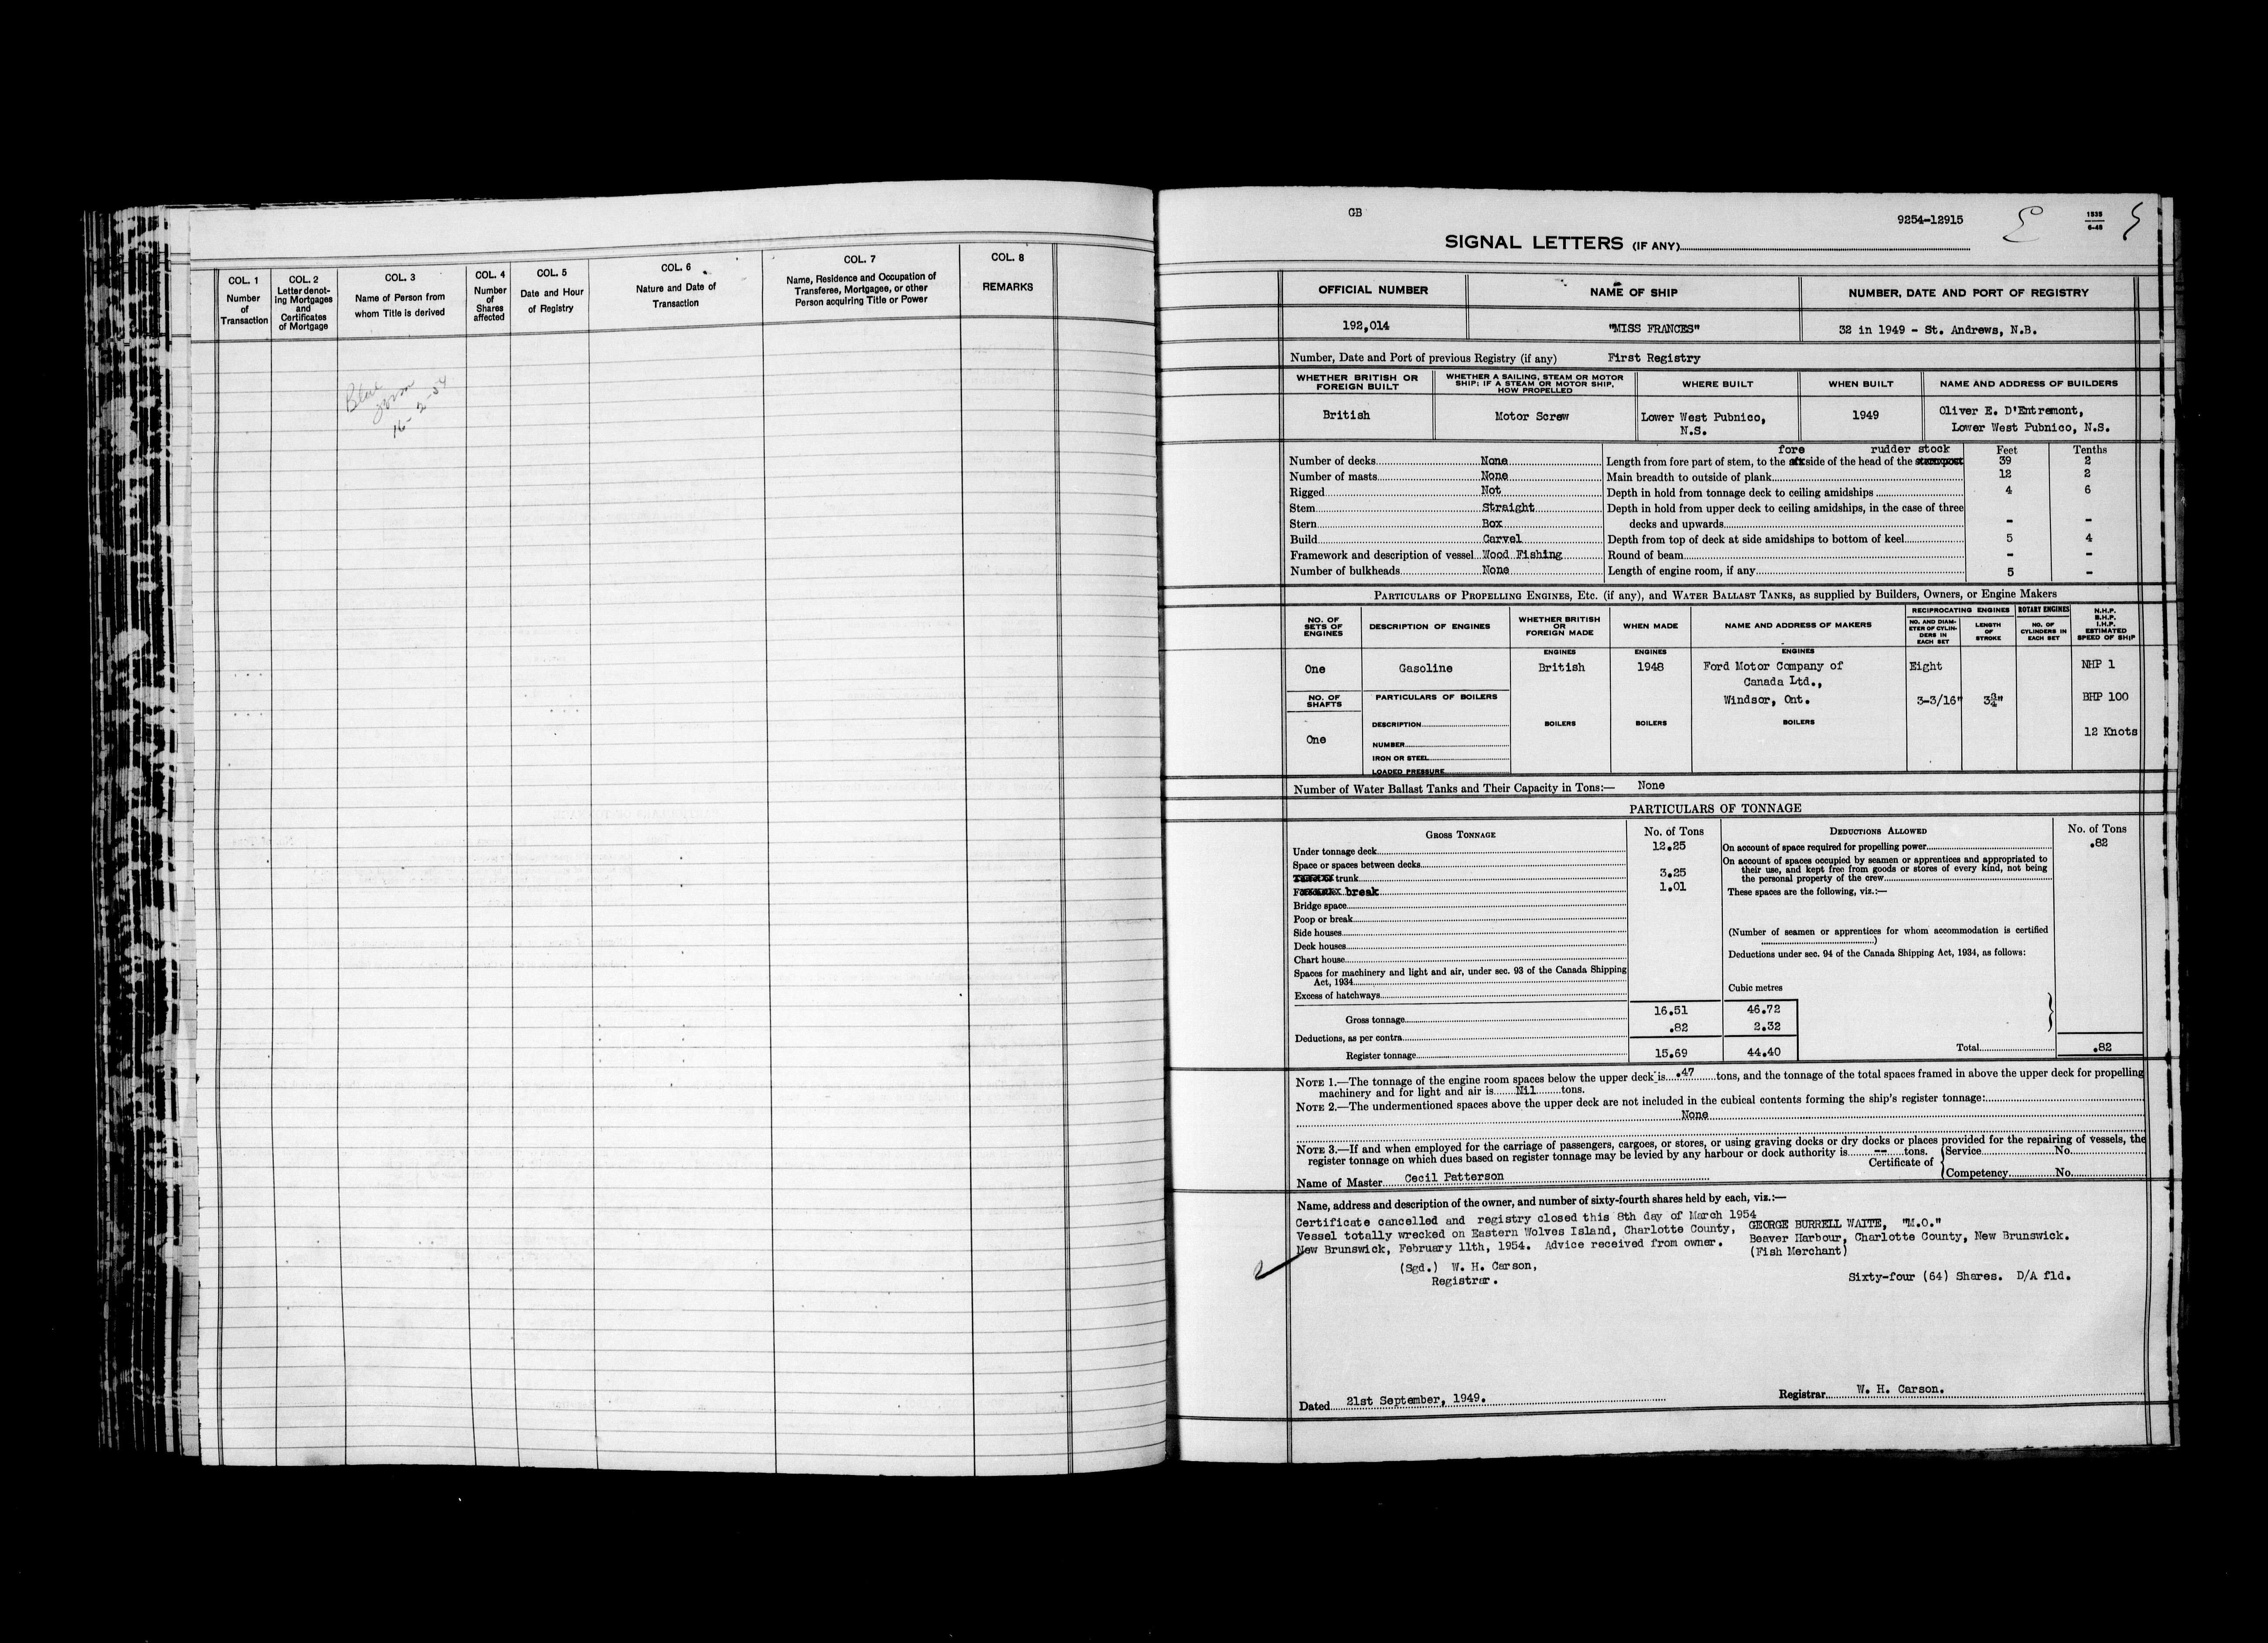 COL. 1
Number
of
Transaction
COL. 2
Letter denot-
ing Mortgages
and
Certificates
of Mortgage
COL. 3
Name of Person from
whom Title is derived
COL. 4
Number
of
Shares
affected
COL. 5
Date and Hour
of Registry
COL. 6
Nature and Date of
Transaction
COL. 7
Name, Residence and Occupation of
Transferee, Mortgagee, or other
Person acquiring Title or Power
COL. 8
REMARKS
Blue
form
16-2-54
GB
9254-12915
1535
6-48
SIGNAL LETTERS (IF ANY)
OFFICIAL NUMBER
NAME OF SHIP
NUMBER, DATE AND PORT OF REGISTRY
192,014
"MISS FRANCES"
32 in 1949 - St. Andrews, N.B.
Number, Date and Port of previous Registry (if any) First Registry
WHETHER BRITISH OR
FOREIGN BUILT
WHETHER A SAILING, STEAM OR MOTOR
SHIP; IF A STEAM OR MOTOR SHIP,
HOW PROPELLED
WHERE BUILT
WHEN BUILT
NAME AND ADDRESS OF BUILDERS
British
Motor Screw
Lower West Pubnico,
N.S.
1949
Oliver E. D'Entremont,
Lower West Pubnico, N.S.
Number of decks None
Number of masts None
Rigged Not
Stem Straight
Stern Box
Build Carvel
Framework and description of vessel Wood Fishing
Number of bulkheads None
fore rudder stock Feet Tenths
Length from fore part of stem, to the aft side of the head of the sternpost 39 2
Main breadth to outside of plank 12 2
Depth in hold from tonnage deck to ceiling amidships 4 6
Depth in hold from upper deck to ceiling amidships, in the case of three
decks and upwards - -
Depth from top of deck at side amidships to bottom of keel 5 4
Round of beam - -
Length of engine room, if any 5 -
PARTICULARS OF PROPELLING ENGINES, ETC. (if any), and WATER BALLAST TANKS, as supplied by Builders, Owners, or Engine Makers
NO. OF
SETS OF
ENGINES
DESCRIPTION OF ENGINES
WHETHER BRITISH
OR
FOREIGN MADE
WHEN MADE
NAME AND ADDRESS OF MAKERS
RECIPROCATING ENGINES
NO. AND DIAM-
ETER OF CYLIN-
DERS IN
EACH SET
LENGTH
OF
STROKE
ROTARY ENGINES
NO. OF
CYLINDERS IN
EACH SET
N.H.P.
B.H.P.
I.H.P.
ESTIMATED
SPEED OF SHIP
ENGINES ENGINES ENGINES
One Gasoline British 1948 Ford Motor Company of Eight NHP 1
Canada Ltd.,
Windsor, Ont. 3-3/16" 3¾" BHP 100
NO. OF
SHAFTS
PARTICULARS OF BOILERS
DESCRIPTION BOILERS BOILERS BOILERS
One 12 Knots
NUMBER
IRON OR STEEL
LOADED PRESSURE
Number of Water Ballast Tanks and Their Capacity in Tons:— None
PARTICULARS OF TONNAGE
GROSS TONNAGE
No. of Tons
Under tonnage deck 12.25
Space or spaces between decks
trunk 3.25
break 1.01
Bridge space
Poop or break
Side houses
Deck houses
Chart house
Spaces for machinery and light and air, under sec. 93 of the Canada Shipping
Act, 1934
Excess of hatchways
Cubic metres
Gross tonnage 16.51 46.72
Deductions, as per contra .82 2.32
Register tonnage 15.69 44.40
DEDUCTIONS ALLOWED
No. of Tons
On account of space required for propelling power .82
On account of spaces occupied by seamen or apprentices and appropriated to
their use, and kept free from goods or stores of every kind, not being
the personal property of the crew
These spaces are the following, viz.:—
(Number of seamen or apprentices for whom accommodation is certified
)
Deductions under sec. 94 of the Canada Shipping Act, 1934, as follows:
Total .82
NOTE 1.—The tonnage of the engine room spaces below the upper deck is .47 tons, and the tonnage of the total spaces framed in above the upper deck for propelling
machinery and for light and air is Nil tons.
NOTE 2.—The undermentioned spaces above the upper deck are not included in the cubical contents forming the ship's register tonnage:
None
NOTE 3.—If and when employed for the carriage of passengers, cargoes, or stores, or using graving docks or dry docks or places provided for the repairing of vessels, the
register tonnage on which dues based on register tonnage may be levied by any harbour or dock authority is -- tons.
Certificate of
Service No.
Competency No.
Name of Master Cecil Patterson
Name, address and description of the owner, and number of sixty-fourth shares held by each, viz.:—
Certificate cancelled and registry closed this 8th day of March 1954
Vessel totally wrecked on Eastern Wolves Island, Charlotte County,
New Brunswick, February 11th, 1954. Advice received from owner.
(Sgd.) W. H. Carson,
Registrar.
GEORGE BURRELL WAITE, "M.O."
Beaver Harbour, Charlotte County, New Brunswick.
(Fish Merchant)
Sixty-four (64) Shares. D/A fld.
Dated 21st September, 1949.
Registrar W. H. Carson.